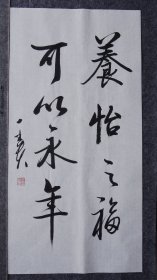 養怡之福
可以永年